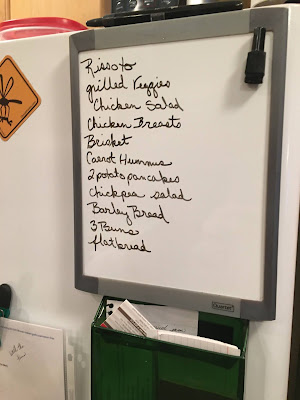 Rissoto
grilled Veggies
Chicken Salad
Chicken Breasts
Brisket
Carrot Hummus
2 potato pancakes
Chickpea salad
Barley Bread
3 Buns
flatbread
QUARTET